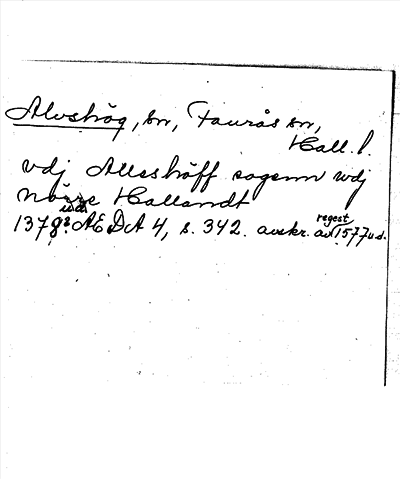 Alvshög, sn, Faurås sn,
Hall. l.
vdj Allsshöff sogenn wdj
Nörre Hallandt
1378? ÆDA 4, s. 342. avskr. av regest 1577 u.d.